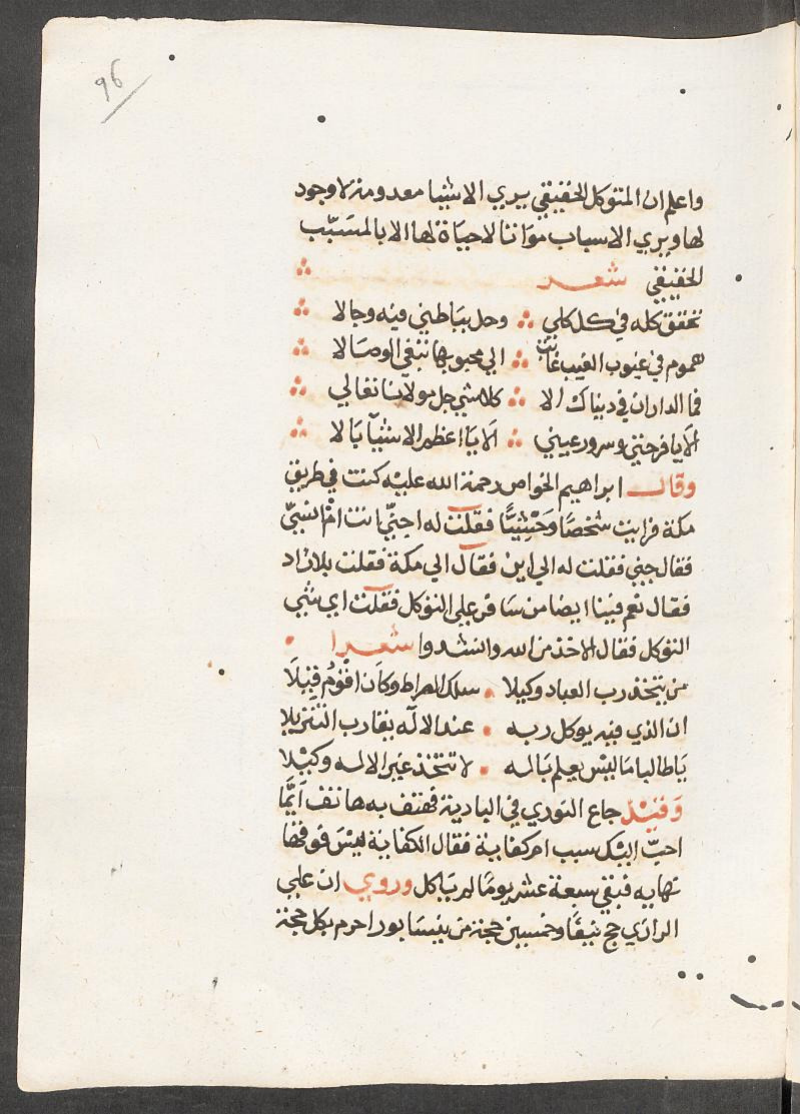 96
واعلم ان المتوكل الحقيقي يري الاشيا معدومة لا وجود
لها ويري الاسباب مواتا لا حياة لها الا بالمسبب
الحقيقي شعر
تحقق كله في كل كلي وحل بباطني فيه وجالا
هموم في غيوب الغيب غابت الي محبوبها تبغي الوصالا
فما الداران في دنياك الا كلا شي جل مولانا تعالي
الايا فرحتي وسرور عيني الايا اعظم الاشيآ بالا
وقال ابراهيم الخواص رحمة الله عليه كنت في طريق
مكة فرايت شخصا وحشيا فقلت له اجني انت ام انسي
فقال جني فقلت له الي اين فقال الي مكة فقلت بلا زاد
فقال نعم فينا ايضا من سافر علي التوكل فقلت اي شي
التوكل فقال الاخذ من الله وانشدوا شعرا
من يتخذ رب العباد وكيلا سلك الصراط وكان اقوم قيلا
ان الذي فيه يوكل ربه عند الاله يقارب التنزيلا
يا طالبا ما ليس يعلم باله لا تتخذ غير الاله وكيلا
وقيل جاع النوري في البادية فهتف به هاتف ايما
احب اليك سبب ام كفاية فقال الكفاية ليس فوقها
نهايه فبقي سبعة عشر يوما لم ياكل وروي ان علي
الرازي حج نيفا وخمسين حجة من نيسابور احرم بكل حجة